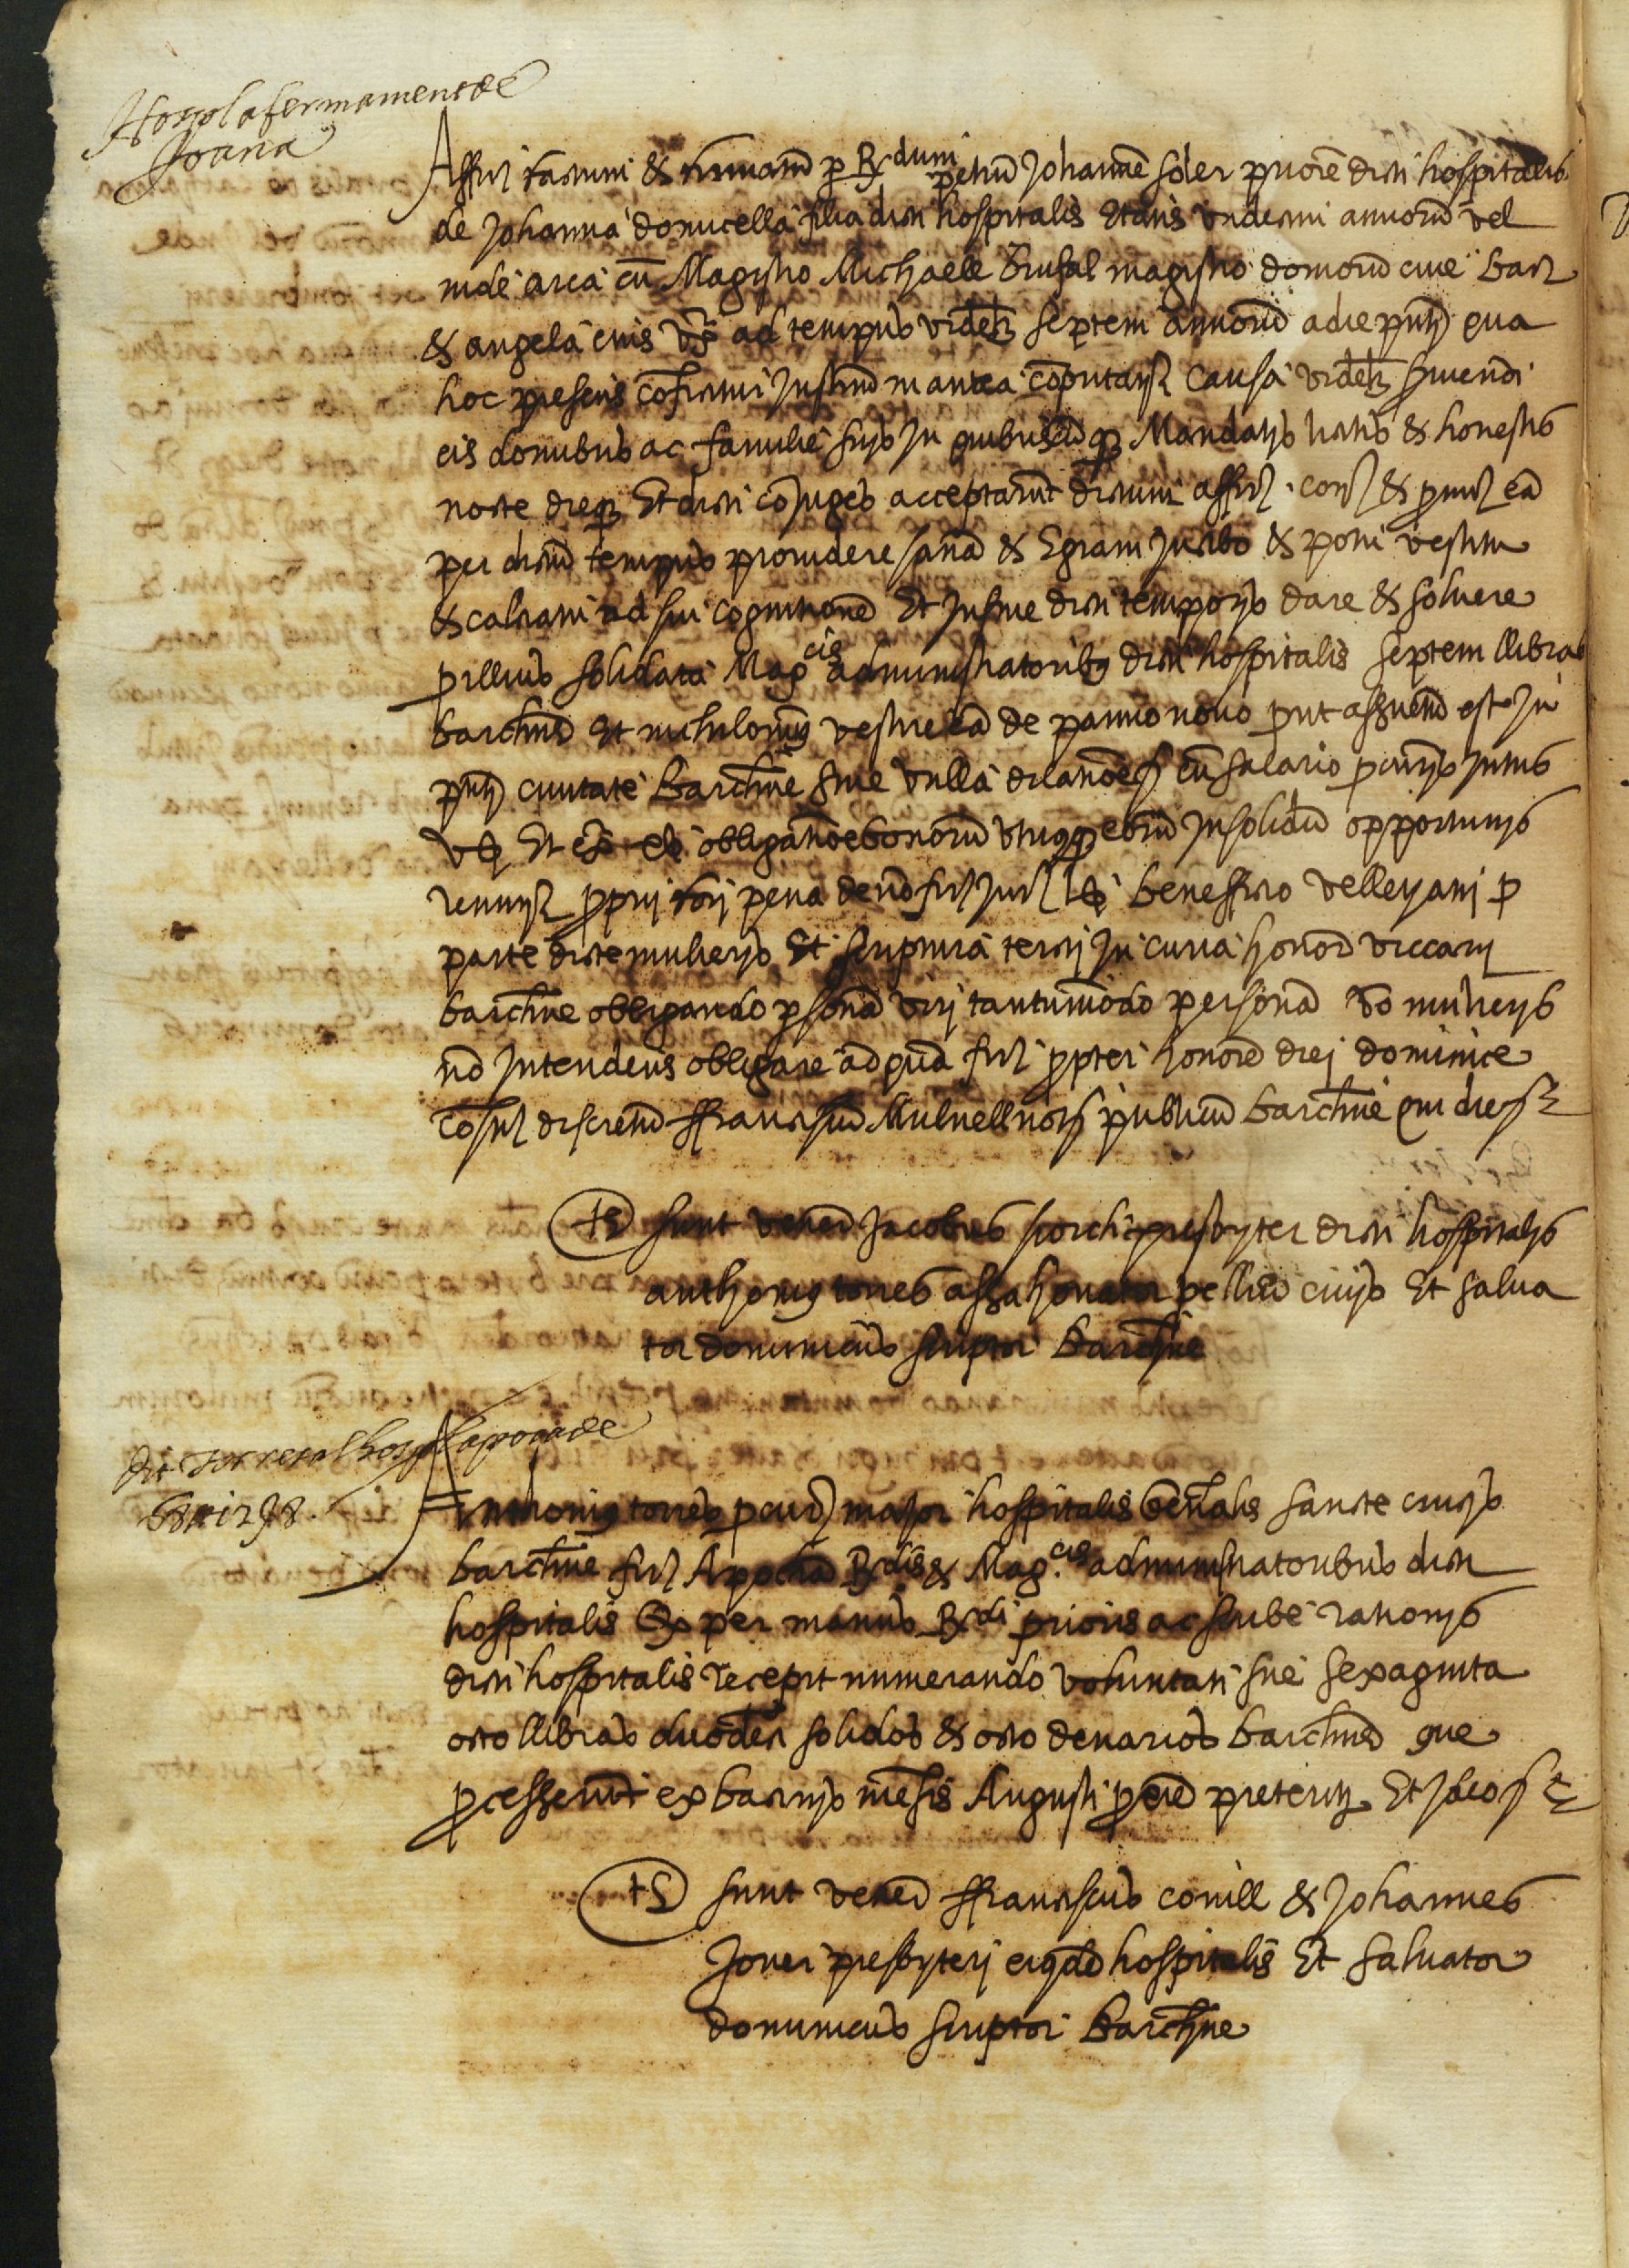 Hospl afermament de
Joana
Affirmt factum & firmatum p Rdum petrũ Johannẽ soler priorẽ dicti hospitalis
de Johanna domicella filia dicti hospitalis Etatis undecim annorũ vel
inde circa cũ Magistro Michaele Brufal magistro domorũ cive barz
& angela eius ux ad tempus videlz septem annorũ a die pnti qua
hoc presens cõficitur Instrũ in antea cõputandz causa videlz serviendi
eis domibus ac familie suis In quibuscũqz Mandatis licitis & honestis
nocte dieqz Et dicti cõiuges acceptarũt dictum affirt. conz & pmitz eã
per dictũ tempus providere sanã & Egram In cibo & potu vestitu
& calciatu ad sui cognitionẽ Et In fine dicti temporis dare & solvere
pillius solidata Magcis administratoribus dicti hospitalis septem llibras
barchinẽ Et nichilominus vestire eã de panno novo put assuetũ est In
pnti civitate Barchine sine ulla dilatione & cũ salario pcuris Intus
Et obligatiõe bonorũ utriusqz eorũ Insolidũ opportunis
renunz proprij fori pena de nõ firz Jurz benefficio velleyani p
parte dicte mulieris Et scriptura tercij In curia honor vicarij
barchine obligando psonã viri tantummodo personã vo mulieris
nõ Intendens obligare ad quã firz propter honorẽ dni dominice
cosulz discretũ ffranciscũ Mulnell notz publicũ barchine qui die
ts sunt venez Jacobus presbyter dicti hospitalis
anthonius torres assahonator pelliũ civis Et salva
tor dominicus scriptor barchine
dit torres al hospl apocade
68 ll 12 s 8
Anthonius torres pcuror maior hospitalis Genralis sancte crucis
barchine firz Apochã Rdis & Mag.cis administratoribus dicti
hospitalis Qz per manus Rdi prioris ac scribe rationis
dicti hospitalis recepit numerando voluntati sue sexaginta
octo llibras duodeci solidos & octo denarios barchinẽ que
pcesserunt ex bacinis mẽsis Augusti pxie preteriti Et Ideo
ts sunt venez ffranciscus conill & Johannes
Jover presbyteri eiusdẽ hospitalis Et salvator
dominicus scriptor barchine